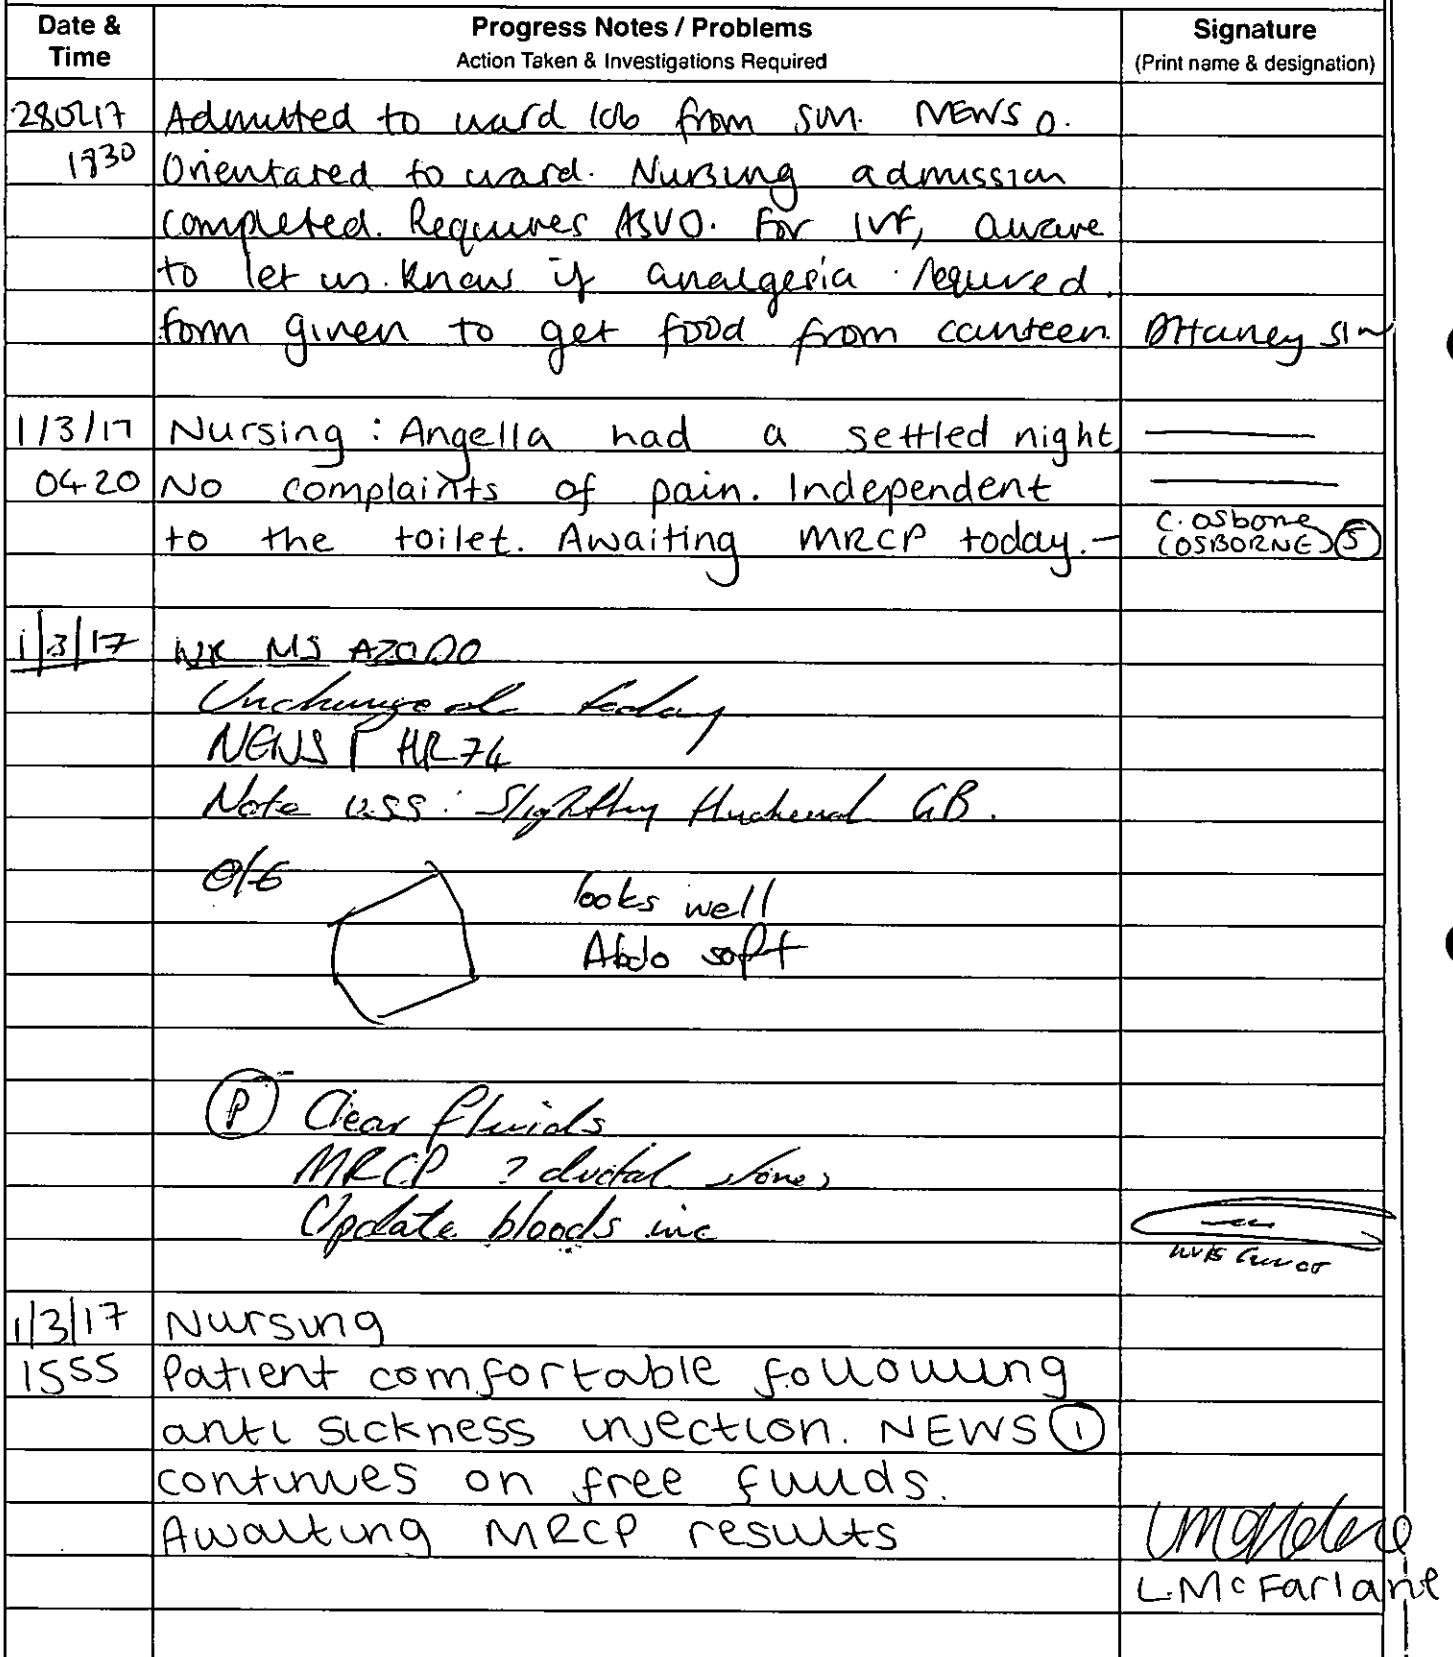 Date & Time
Progress Notes / Problems
Action Taken & Investigations Required
Signature
(Print name & designation)
280217 Admitted to ward 10b from
NEWS 0.
1930 Orientated to ward. Nursing admission
completed. Requires For IVF, aware
to let us know if analgesia required.
form given to get food from canteen.
1/3/17 Nursing : Angella had a settled night
0420 No complaints of pain. Independent
to the toilet. Awaiting MRCP today. C. Osborne
(OSBORNE) 5
1/3/17 WR MS
Unchanged today
NEWS 1 HR 74
Note USS : Slightly thickened GB.
O/E
looks well
Abdo soft
P Clear fluids
MRCP ? ductal stones
Update bloods inc
1/3/17 Nursing
1555 Patient comfortable following
anti sickness injection. NEWS 1
continues on free fluids.
Awaiting MRCP results
L. McFarlane